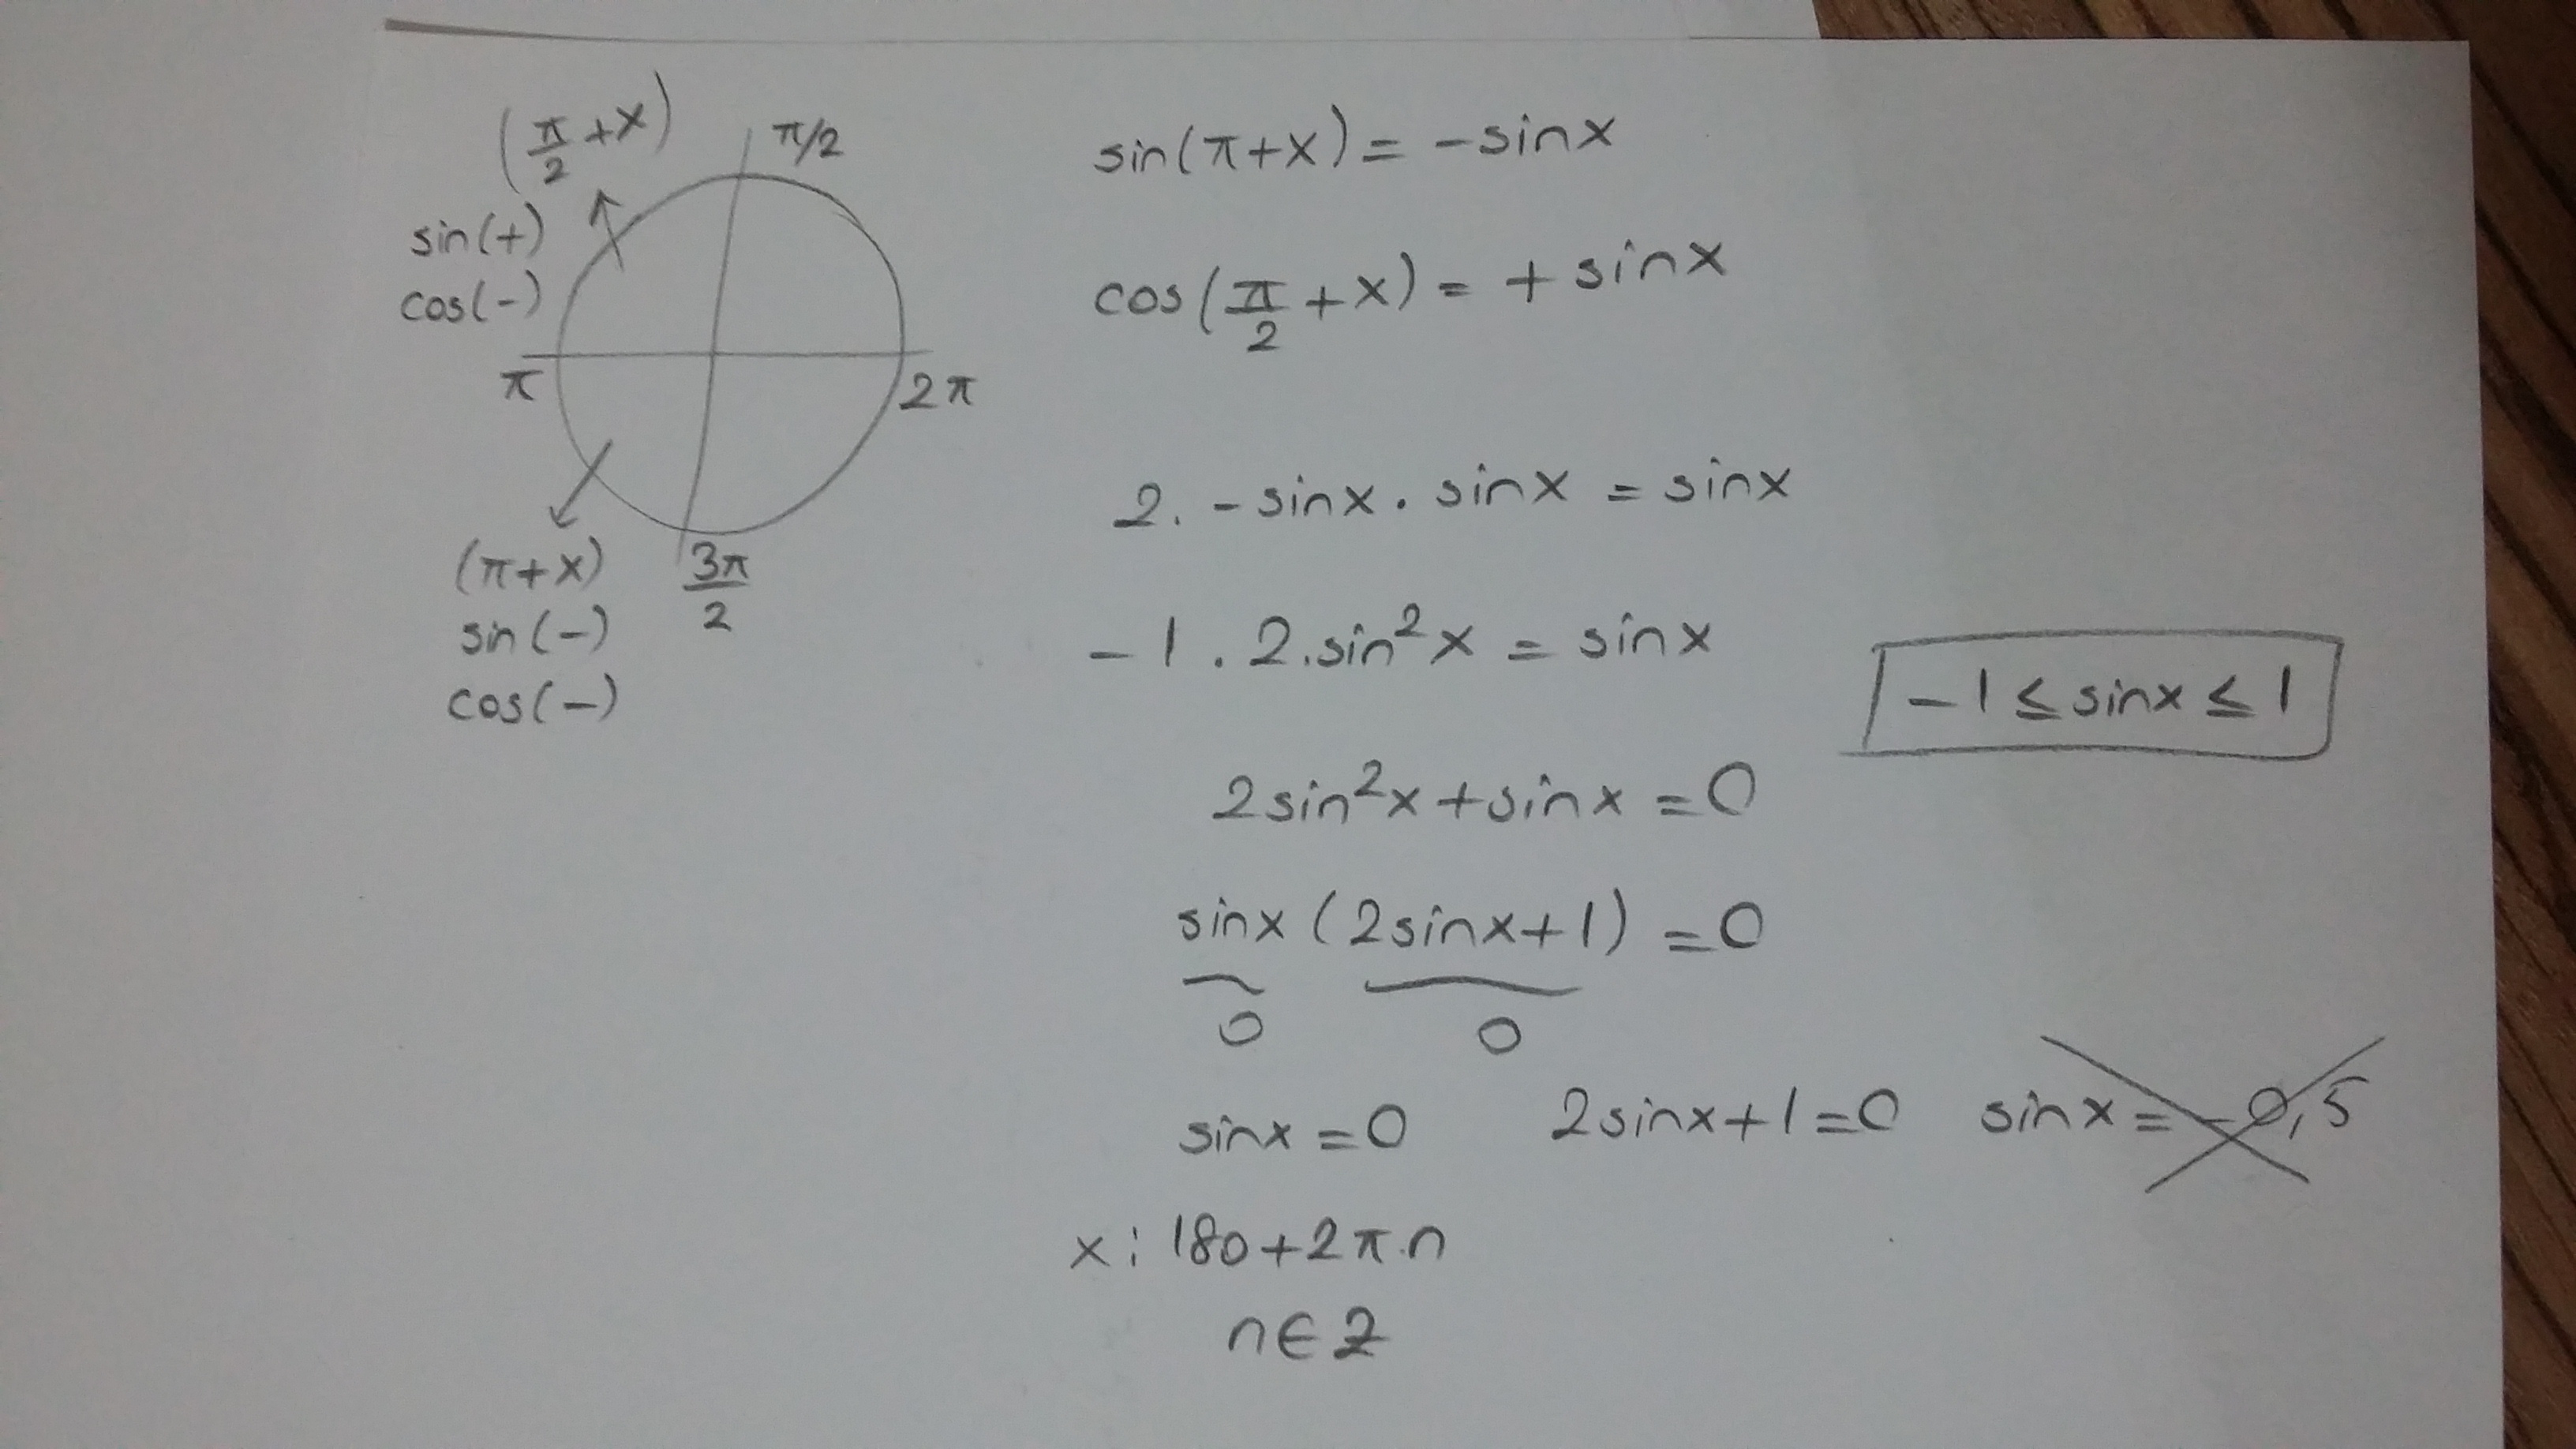 (π/2 + x)
π/2
sin(+)
cos(-)
π
2π
3π/2
(π+x)
sin(-)
cos(-)
sin(π+x) = -sinx
cos(π/2 + x) = + sinx
2. -sinx . sinx = sinx
-1 . 2.sin²x = sinx
-1 ≤ sinx ≤ 1
2sin²x + sinx = 0
sinx (2sinx+1) = 0
0 0
sinx = 0 2sinx+1 = 0 sinx = -0,5
x : 180+2π.n
n∈Z